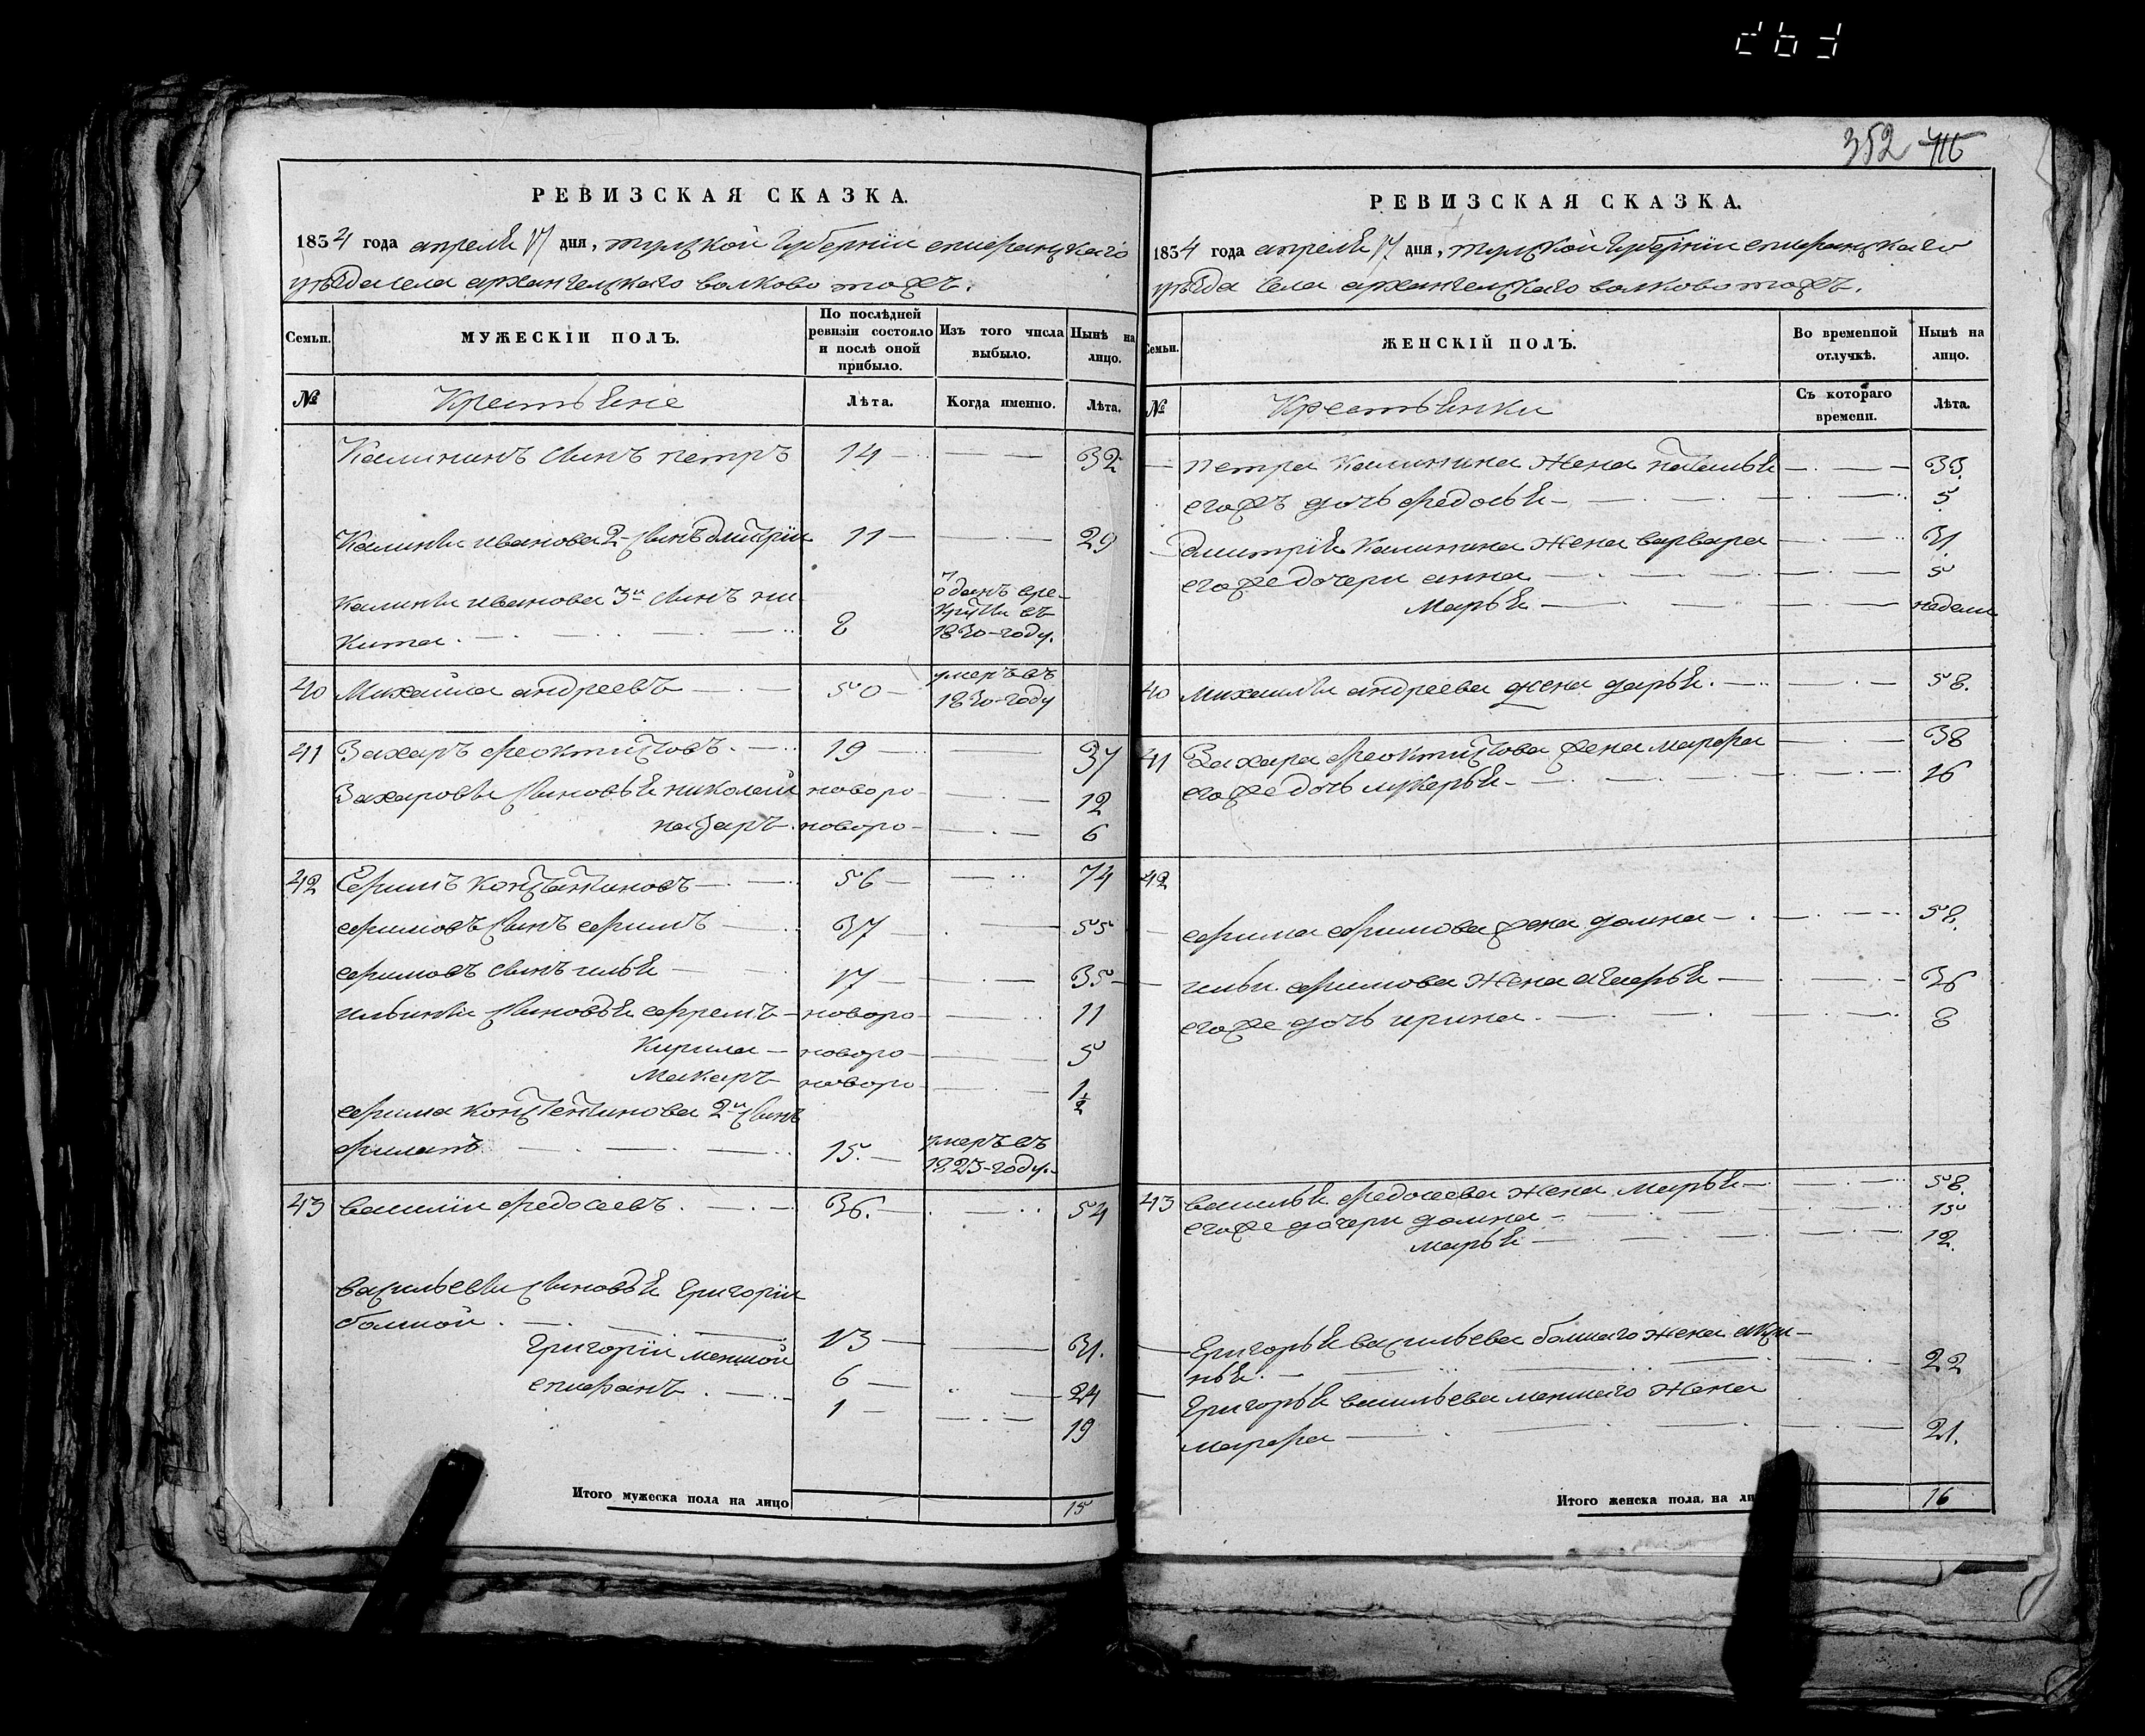 352 416
РЕВИЗСКАЯ СКАЗКА.
1834 года апреля 17 дня, тулской губернiи епифанскаго
уѣзда села архангелскаго волково тожъ.
Семьи.
МУЖЕСКIЙ ПОЛЪ.
По послѣдней ревизiи состояло и послѣ оной прибыло.
Изъ того числа выбыло.
Нынѣ на лицо.
№
Крестьянiе
Лѣта.
Когда именно.
Лѣта.
Калининъ сынъ петръ 14 32
Калины иванова 2 сынъ дмитрiи 11 29
Калины иванова 3й сынъ ни
кита 8
оданъ вре-
круты въ
1830-году.
40 Михайла андреевъ 50 умеръ въ
1830-году
41 Захаръ феоктистовъ 19 37
Захаровы сыновья николай новоро 12
назаръ новоро 6
42 Ефимъ константиновъ 56 74
ефимовъ сынъ ефимъ 37 55
ефимовъ сынъ илья 17 35
ильины сыновья ефремъ новоро 11
Кирила новоро 5
Макаръ новоро 1½
ефима константинова 2й сынъ
филатъ 15 умеръ въ
1823-году.
43 василiи федосеевъ 36 54
васильевы сыновья григорiи
болшой 13 31
григорiи меншой 6 24
епифанъ 1 19
Итого мужеска пола на лицо 15
РЕВИЗСКАЯ СКАЗКА.
1834 года апреля 17 дня, тулской губернiи епифанскаго
уѣзда села архангелскаго волково тожъ.
Семьи.
ЖЕНСКIЙ ПОЛЪ.
Во временной отлучкѣ.
Нынѣ на лицо.
№
Крестьянки
Съ котораго времени.
Лѣта.
петра калинина жена наталья 33
егожъ дочь федосья 5
дмитрiя калинина жена варвара 31
егоже дочери анна 5
марья недели
40 михаилы андреева жена дарья 58
41 Захара феоктистова жена марфа 38
егоже дочь лукерья 16
42
ефима ефимова жена домна 58
ильи ефимова жена 36
егоже дочь ирина 8
43 василья федосеева жена марья 58
егоже дочери домна 15
марья 12
Григорья васильева болшаго жена акси-
нья 22
Григорья васильева меншаго жена
марфа 21
Итого женска пола, на ли 16